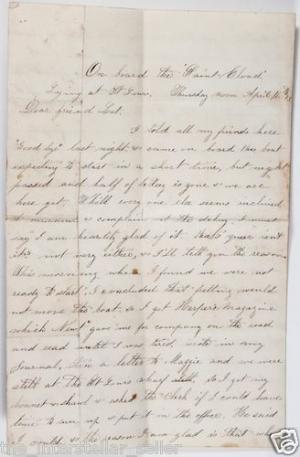 On board the "Saint Cloud"
Lying at St Louis. Thursday noon April
Dear friend
I told all my friends here
"Good by" last night & came on board the boat
expecting to start in a short time, but night
passed and half of today is gone & we are
here yet. While every one else seems inclined
to murmur & complain at the delay, I must
say "I am heartily glad of it" that's "queer" isn't
it not very either, so I'll tell you the reason
this morning when I found we were not
ready to start, I concluded that petting would
not move the boat. so I got Harper's Magazine
which gave me for company on the road
and read until I was tired, wrote in my
Journal, a letter to Maggie and we were
still at The St Louis wharf so I got my
bonnet & shawl & asked the Clerk if I could have
time to run up & put it in the office. He said
I could, so the reason I am glad is that
the_interstellar_seller